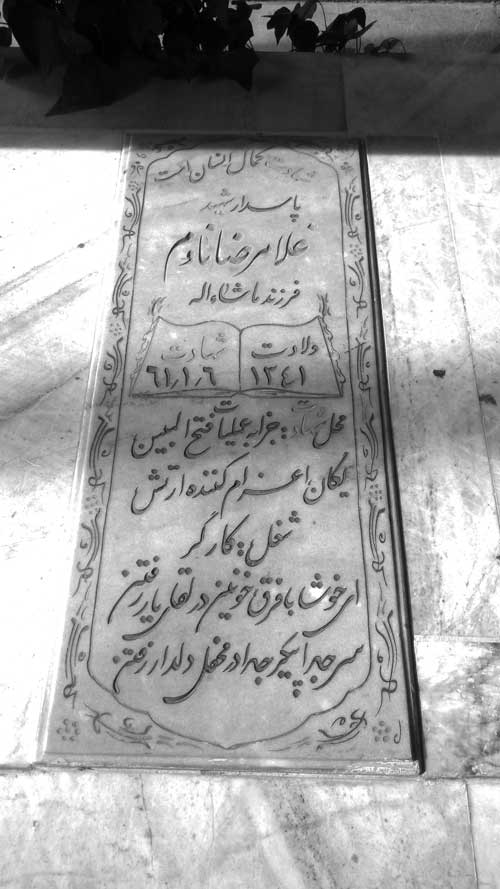 شهادت کمال انسان است
پاسدار شهید
غلامرضا نادم
فرزند ماشاءاله
ولادت شهادت
۱۳۴۱ ۶۱/۱/۶
محل شهادت: جزابه عملیات فتح المبین
یگان اعزام کننده ارتش
شغل: کارگر
ای خوشا با فرق خونین در لقای یار رفتن
سر جدا پیکر جدا در محفل دلدار رفتن